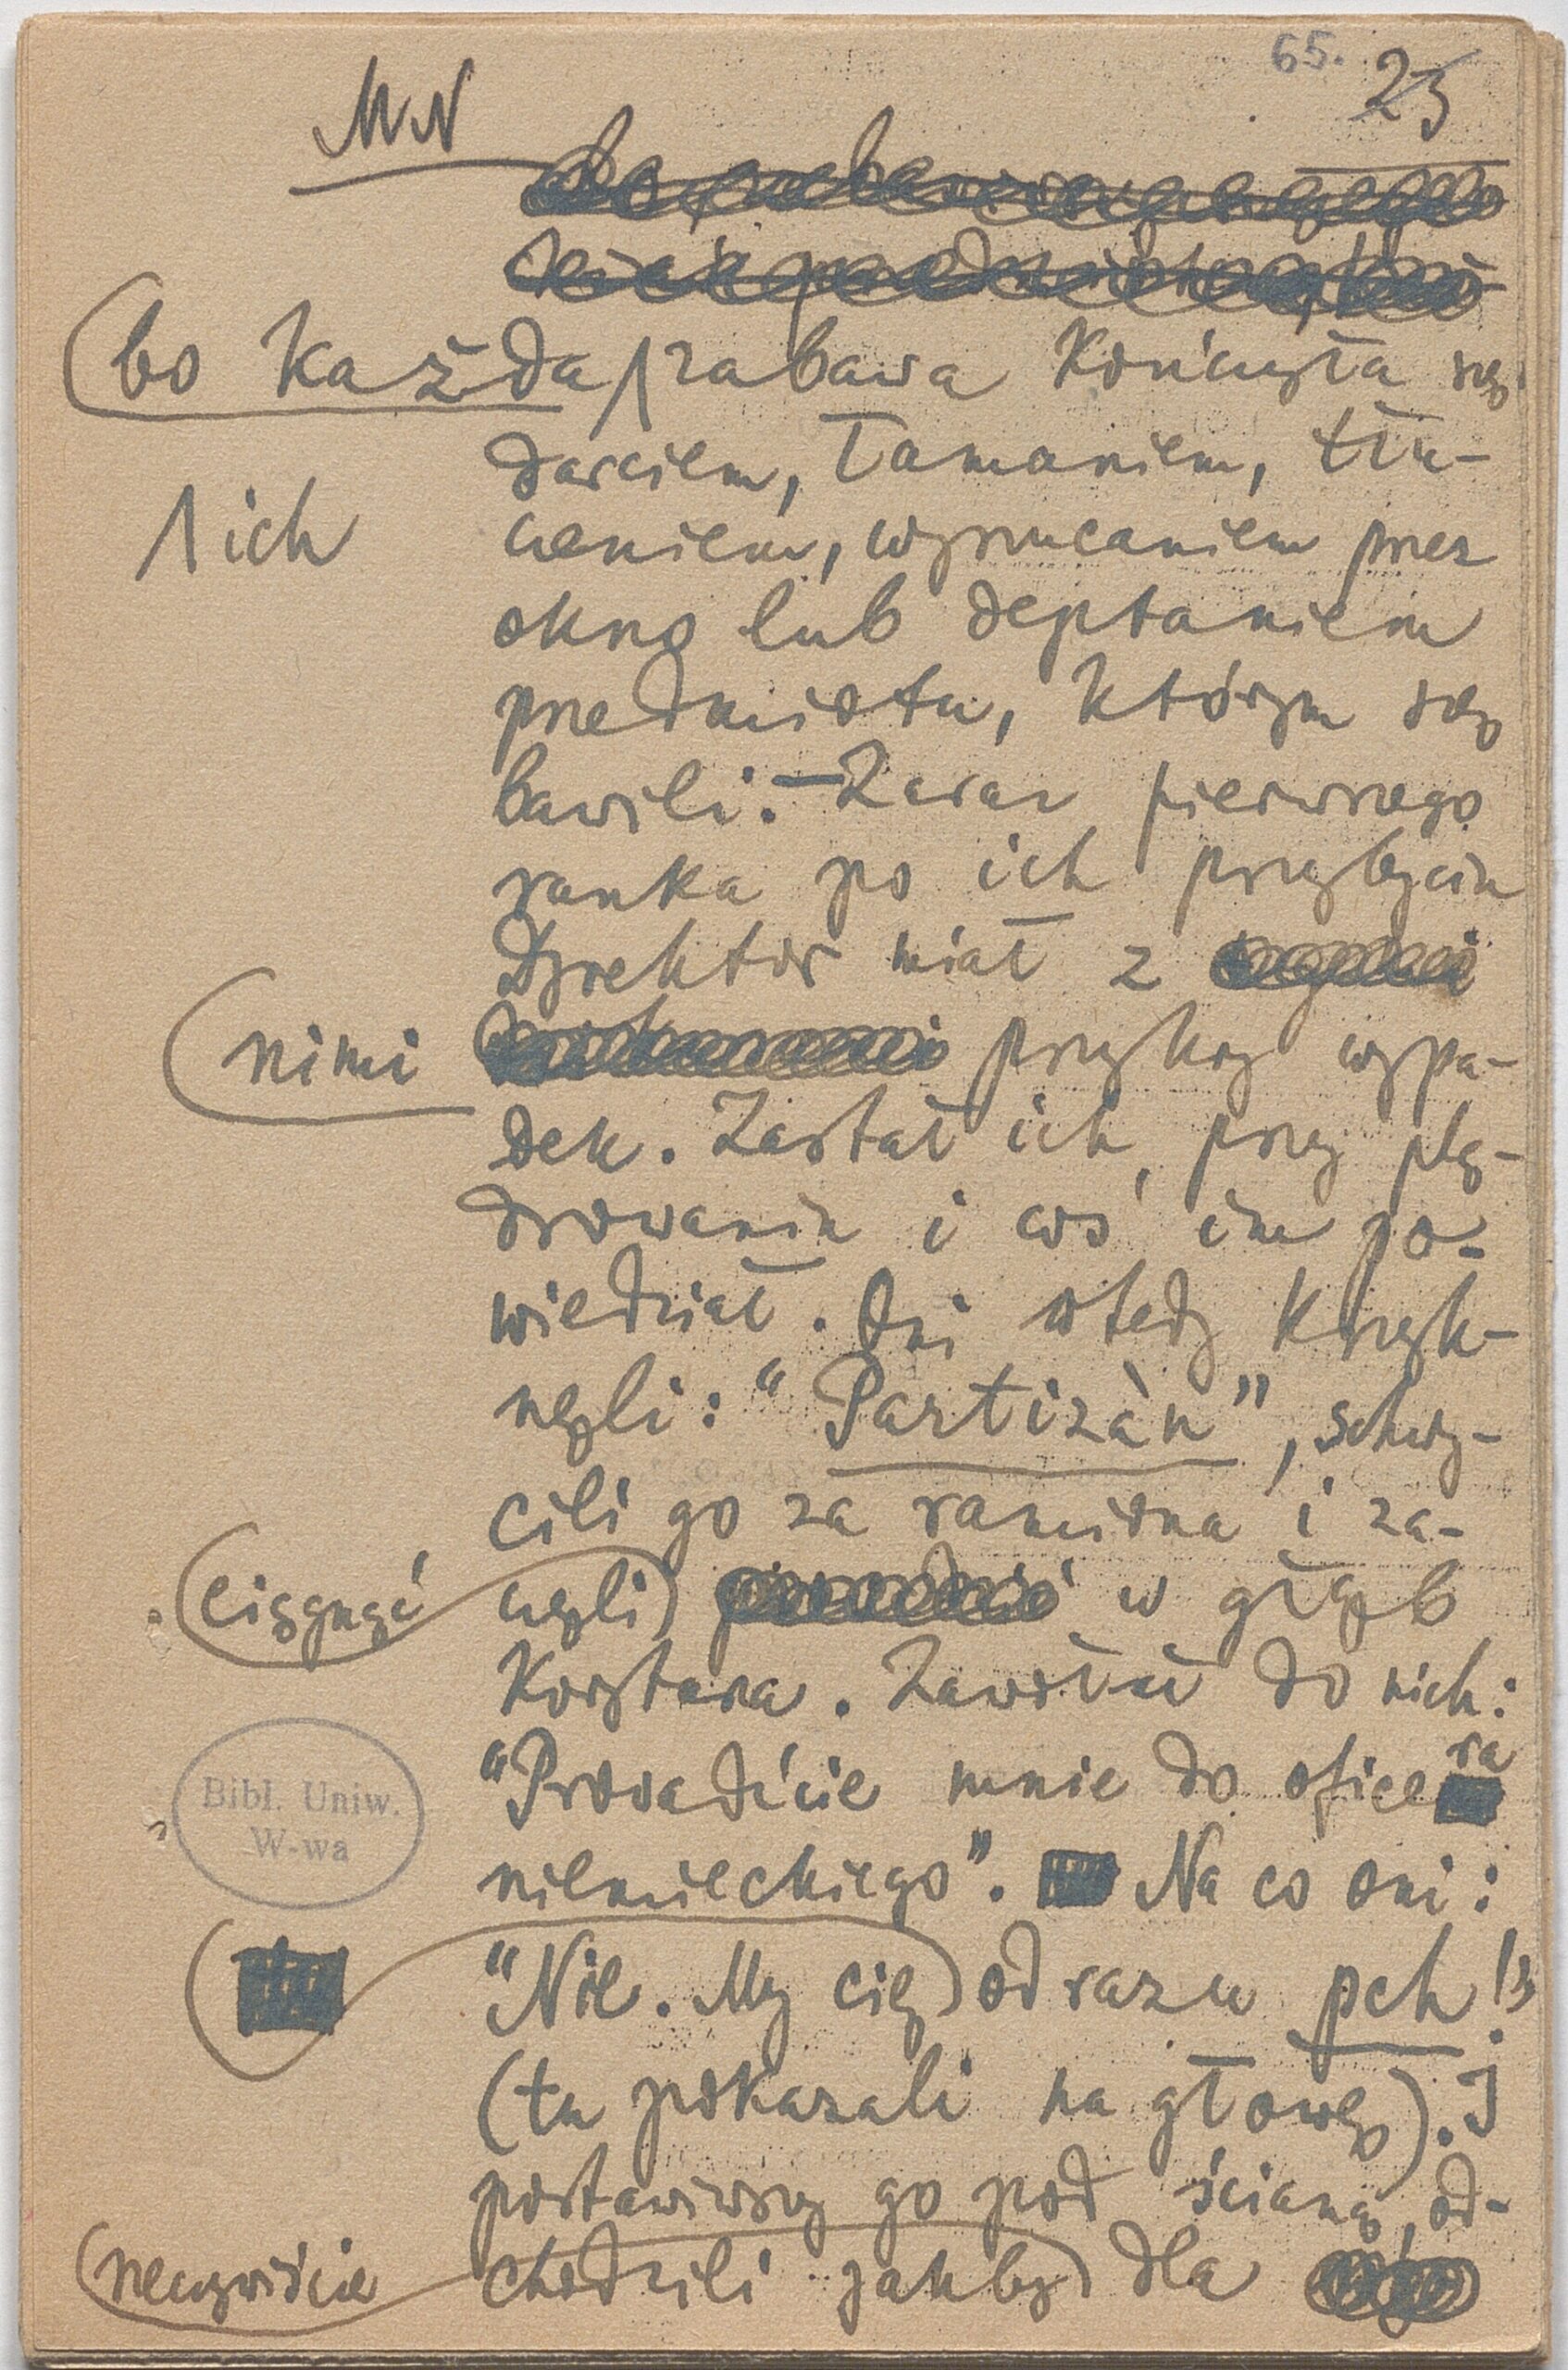 65. 23
MN
bo każda zabawa kończyła się
darciem, łamaniem, tłu-
1 ich czeniem, wyrzucaniem przez
okno lub deptaniem
przedmiotu, którym się
bawili. – Zaraz pierwszego
ranka po ich przybyciu
Dyrektor miał z
nimi przykry wypa-
dek. Zastał ich przy plą-
drowaniu i coś im po-
wiedział. Oni wtedy krzyk-
nęli: “Partizàn”, schwy-
cili go za ramiona i za-
ciągnąć częli w głąb
Korytarza. Zawołał do nich:
“Prowadźcie mnie do oficera
niemieckiego”. Na co oni:
“Nie. My cię od razu pch!”
(tu pokazali na głowę). I
postawiwszy go pod ścianą, od-
rzeczywiście chodzili jakby dla
Bibl. Uniw.
W-wa